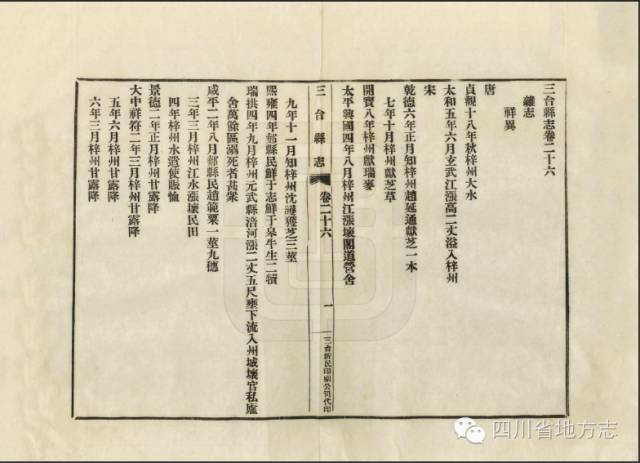 三台縣志卷二十六
雜志
祥異
唐
貞觀十八年秋梓州大水
太和五年六月玄武江漲高二丈溢入梓州
宋
乾德六年正月知梓州趙延通獻芝一本
七年十月梓州獻芝草
開寶八年梓州獻瑞麥
太平興國四年八月梓州江漲壞閣道營舍
三台縣志
卷二十六
一
三台新民印刷公司代印
九年十一月知梓州沈護獲芝三莖
熙雍四年郪縣民鮮于志鮮于皋牛生二犢
瑞拱四年九月梓州元武縣涪河漲二丈五尺壅下流入州城壞官私廬
舍萬餘區溺死者甚衆
咸平二年八月郪縣民趙範粟一莖九穗
三年三月梓州江水漲壞民田
四年梓州水遣使賑恤
景德二年正月梓州甘露降
大中祥符二年三月梓州甘露降
五年六月梓州甘露降
六年三月梓州甘露降
四川省地方志